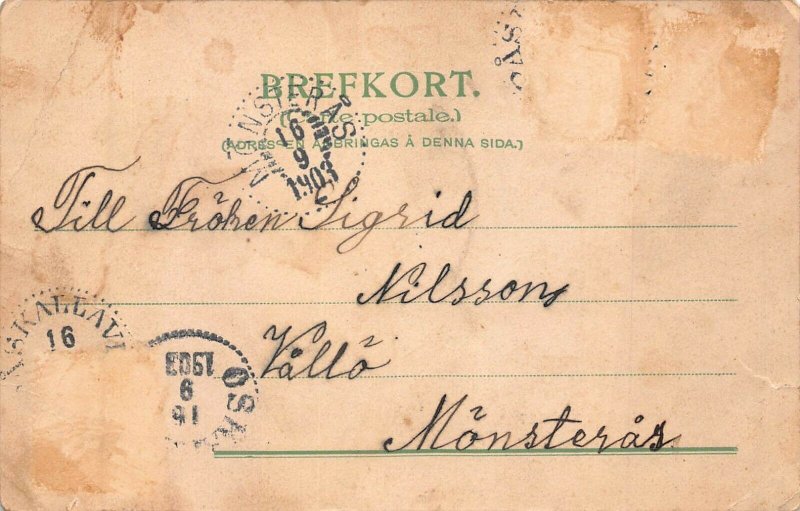 BREFKORT.
(Carte postale.)
(ADRESSEN ANBRINGAS Å DENNA SIDA.)
MÖNSTERÅS
16
9
1903
Till Fröken Sigrid
Nilsson
Vållö
Mönsterås
16
1903
9
16